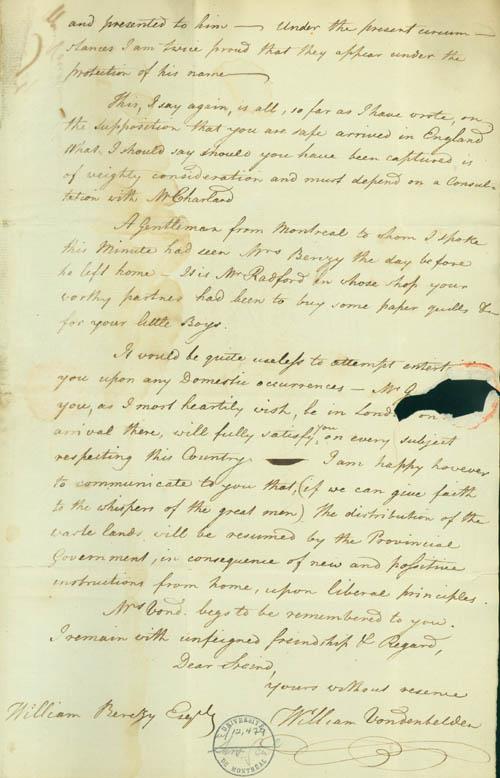 and presented to him — Under the present circum—
stances I am twice proud that they appear under the
protection of his name —
This, I say again, is all, so far as I have wrote, on
the supposition that you are safe arrived in England
What I should say should you have been captured is
of weighty consideration and must depend on a Consul-
tation with Mr Charland
A Gentleman from Montreal to whom I spoke
this Minute had seen Mrs Berczy the day before
he left home — It is Mr Radford in whose shop your
worthy partner had been to buy some paper quills &c
for your little Boys.
It would be quite useless to attempt entert
you upon any Domestic occurrences — Mr
you, as I most heartily wish, be in Lond on
arrival there, will fully satisfy you on every subject
respecting this Country — I am happy however
to communicate to you that, (if we can give faith
to the whispers of the great men) the distribution of the
waste lands will be resumed by the Provincial
Government, in consequence of new and possitive
instructions from home, upon liberal principles.
Mrs Vond. begs to be remembered to you.
I remain with unfeigned freindship & Regard,
Dear Freind,
Yours without reserve
William Berczy Esqr William Vondenvelden
UNIVERSITÉ
DE MONTREAL